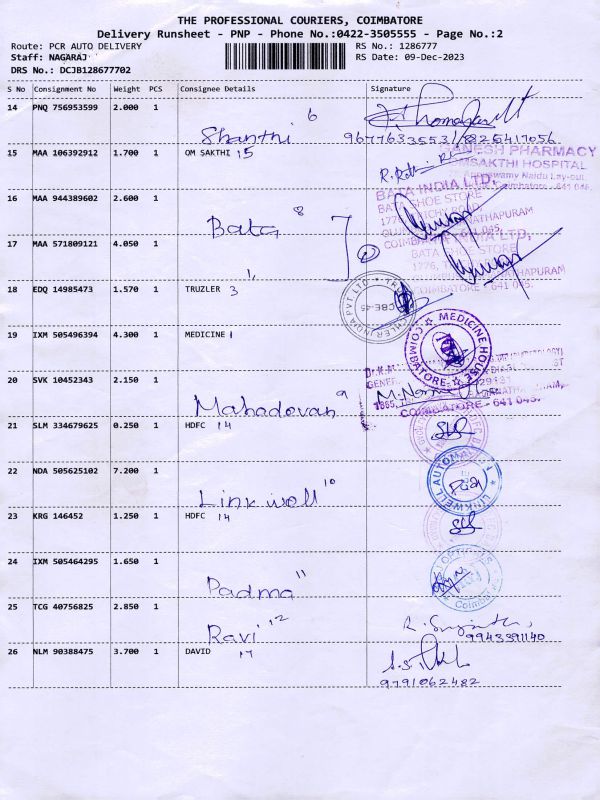 THE PROFESSIONAL COURIERS, COIMBATORE
Delivery Runsheet - PNP - Phone No.:0422-3505555 - Page No.:2
Route: PCR AUTO DELIVERY
RS No.: 1286777
Staff: NAGARAJ
RS Date: 09-Dec-2023
DRS No.: DCJB128677702
S No Consignment No Weight PCS Consignee Details Signature
14 PNQ 756953599 2.000 1
Shanthi 6
9677633553/8825417056.
15 MAA 106392912 1.700 1 OM SAKTHI 15
GANESH PHARMACY
OMSAKTHI HOSPITAL
16 MAA 944389602 2.600 1
Bata 8
BATA INDIA LTD,
BATA SHOE STORE
COIMBATORE - 641 045.
17 MAA 571809121 4.050 1
BATA INDIA LTD,
BATA STORE
1776,
COIMBATORE - 641 045.
18 EDQ 14985473 1.570 1 TRUZLER 3
CBE-45
19 IXM 505496394 4.300 1 MEDICINE 1
MEDICINE HOUSE
COIMBATORE
20 SVK 10452343 2.150 1
Mahadovan 9
COIMBATORE - 641 045.
21 SLM 334679625 0.250 1 HDFC 14
22 NDA 505625102 7.200 1
Linkwell 10
LINKWELL AUTOMATION
23 KRG 146452 1.250 1 HDFC 14
24 IXM 505464295 1.650 1
Padma 11
OPTICALS
Coimbatore
25 TCG 40756825 2.850 1
Ravi 12
9943391140
26 NLM 90388475 3.700 1 DAVID 17
9791062482